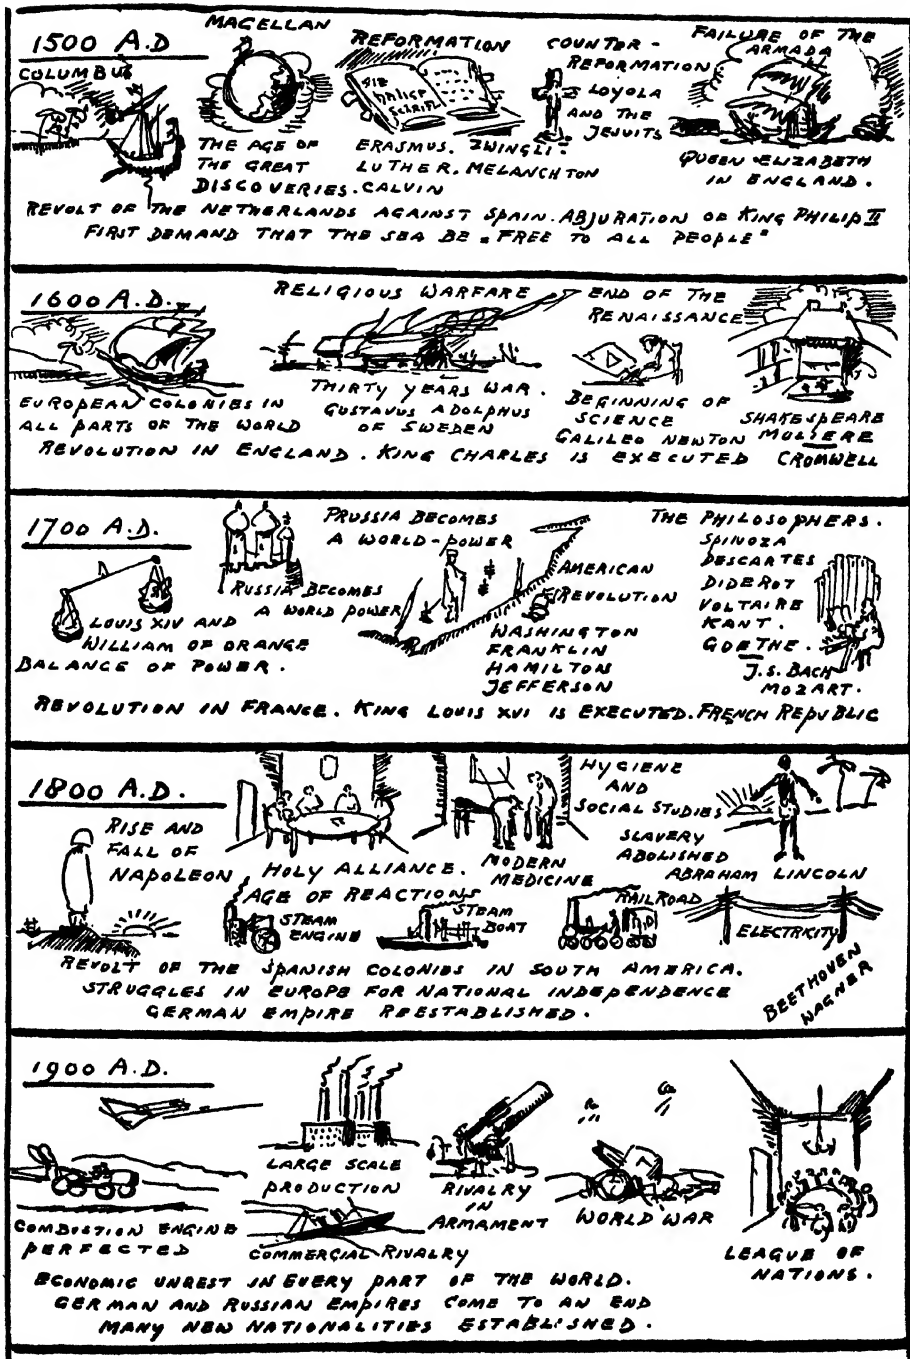 1500 A.D
COLUMBUS
MAGELLAN
THE AGE OF
THE GREAT
DISCOVERIES.
REFORMATION
DIE
HEILIGE
SCHRIFT
ERASMUS. ZWINGLI.
LUTHER. MELANCHTON
CALVIN
COUNTER-
REFORMATION
LOYOLA
AND THE
JESUITS
FAILURE OF THE
ARMADA
QUEEN ELIZABETH
IN ENGLAND.
REVOLT OF THE NETHERLANDS AGAINST SPAIN. ABJURATION OF KING PHILIP II
FIRST DEMAND THAT THE SEA BE "FREE TO ALL PEOPLE"
1600 A.D.
EUROPEAN COLONIES IN
ALL PARTS OF THE WORLD
RELIGIOUS WARFARE
THIRTY YEARS WAR.
GUSTAVUS ADOLPHUS
OF SWEDEN
END OF THE
RENAISSANCE
BEGINNING OF
SCIENCE
GALILEO NEWTON
SHAKESPEARE
MOLIERE
CROMWELL
REVOLUTION IN ENGLAND. KING CHARLES IS EXECUTED
1700 A.D.
LOUIS XIV AND
WILLIAM OF ORANGE
BALANCE OF POWER.
RUSSIA BECOMES
A WORLD POWER
PRUSSIA BECOMES
A WORLD-POWER
AMERICAN
REVOLUTION
WASHINGTON
FRANKLIN
HAMILTON
JEFFERSON
THE PHILOSOPHERS.
SPINOZA
DESCARTES
DIDEROT
VOLTAIRE
KANT.
GOETHE.
J.S. BACH
MOZART.
REVOLUTION IN FRANCE. KING LOUIS XVI IS EXECUTED. FRENCH REPUBLIC
1800 A.D.
RISE AND
FALL OF
NAPOLEON
HOLY ALLIANCE.
AGE OF REACTIONS
MODERN
MEDICINE
HYGIENE
AND
SOCIAL STUDIES
SLAVERY
ABOLISHED
ABRAHAM LINCOLN
STEAM
ENGINE
STEAM
BOAT
RAILROAD
ELECTRICITY
REVOLT OF THE SPANISH COLONIES IN SOUTH AMERICA.
STRUGGLES IN EUROPE FOR NATIONAL INDEPENDENCE
GERMAN EMPIRE REESTABLISHED.
BEETHOVEN
WAGNER
1900 A.D.
COMBUSTION ENGINE
PERFECTED
LARGE SCALE
PRODUCTION
COMMERCIAL RIVALRY
RIVALRY
IN
ARMAMENT
WORLD WAR
LEAGUE OF
NATIONS.
ECONOMIC UNREST IN EVERY PART OF THE WORLD.
GERMAN AND RUSSIAN EMPIRES COME TO AN END
MANY NEW NATIONALITIES ESTABLISHED.